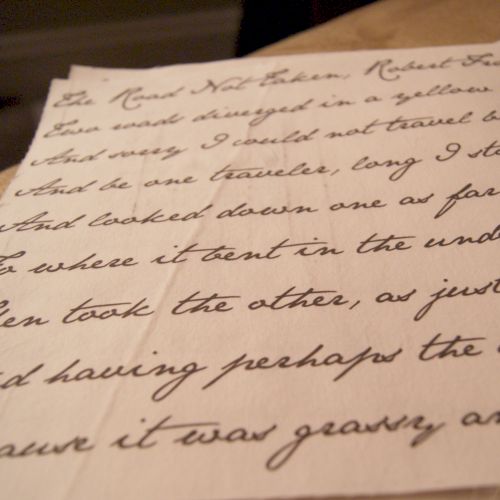 The Road Not Taken, Robert Fro
Two wads diverged in a yellow
And sorry I could not travel b
And be one traveler, long I sto
And looked down one as far
To where it bent in the und
en took the other, as just
d having perhaps the
ause it was grassy an